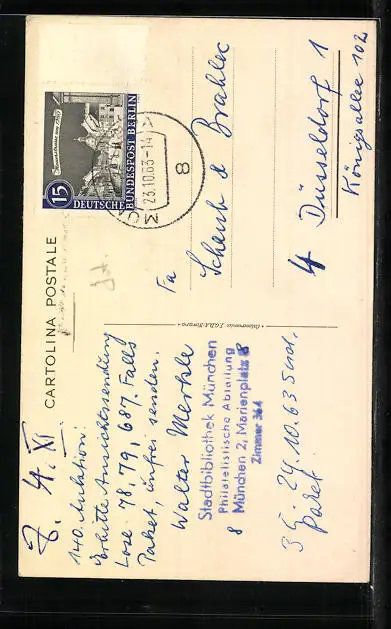 CARTOLINA POSTALE
Z. 4. XI.
140. Auktion:
Erbitte Ansichtssendung
Lose 78, 79, 687. Falls
Paket, unfrei senden.
Walter Merkle
Stadtbibliothek München
Philatelistische Abteilung
München 2, Marienplatz 8
Zimmer 364
8
24.10.63
Paket
15
DEUTSCHE BUNDESPOST BERLIN
23.10.63-14
8
Fa
Schenk &
4 Düsseldorf 1
Königsallee 102